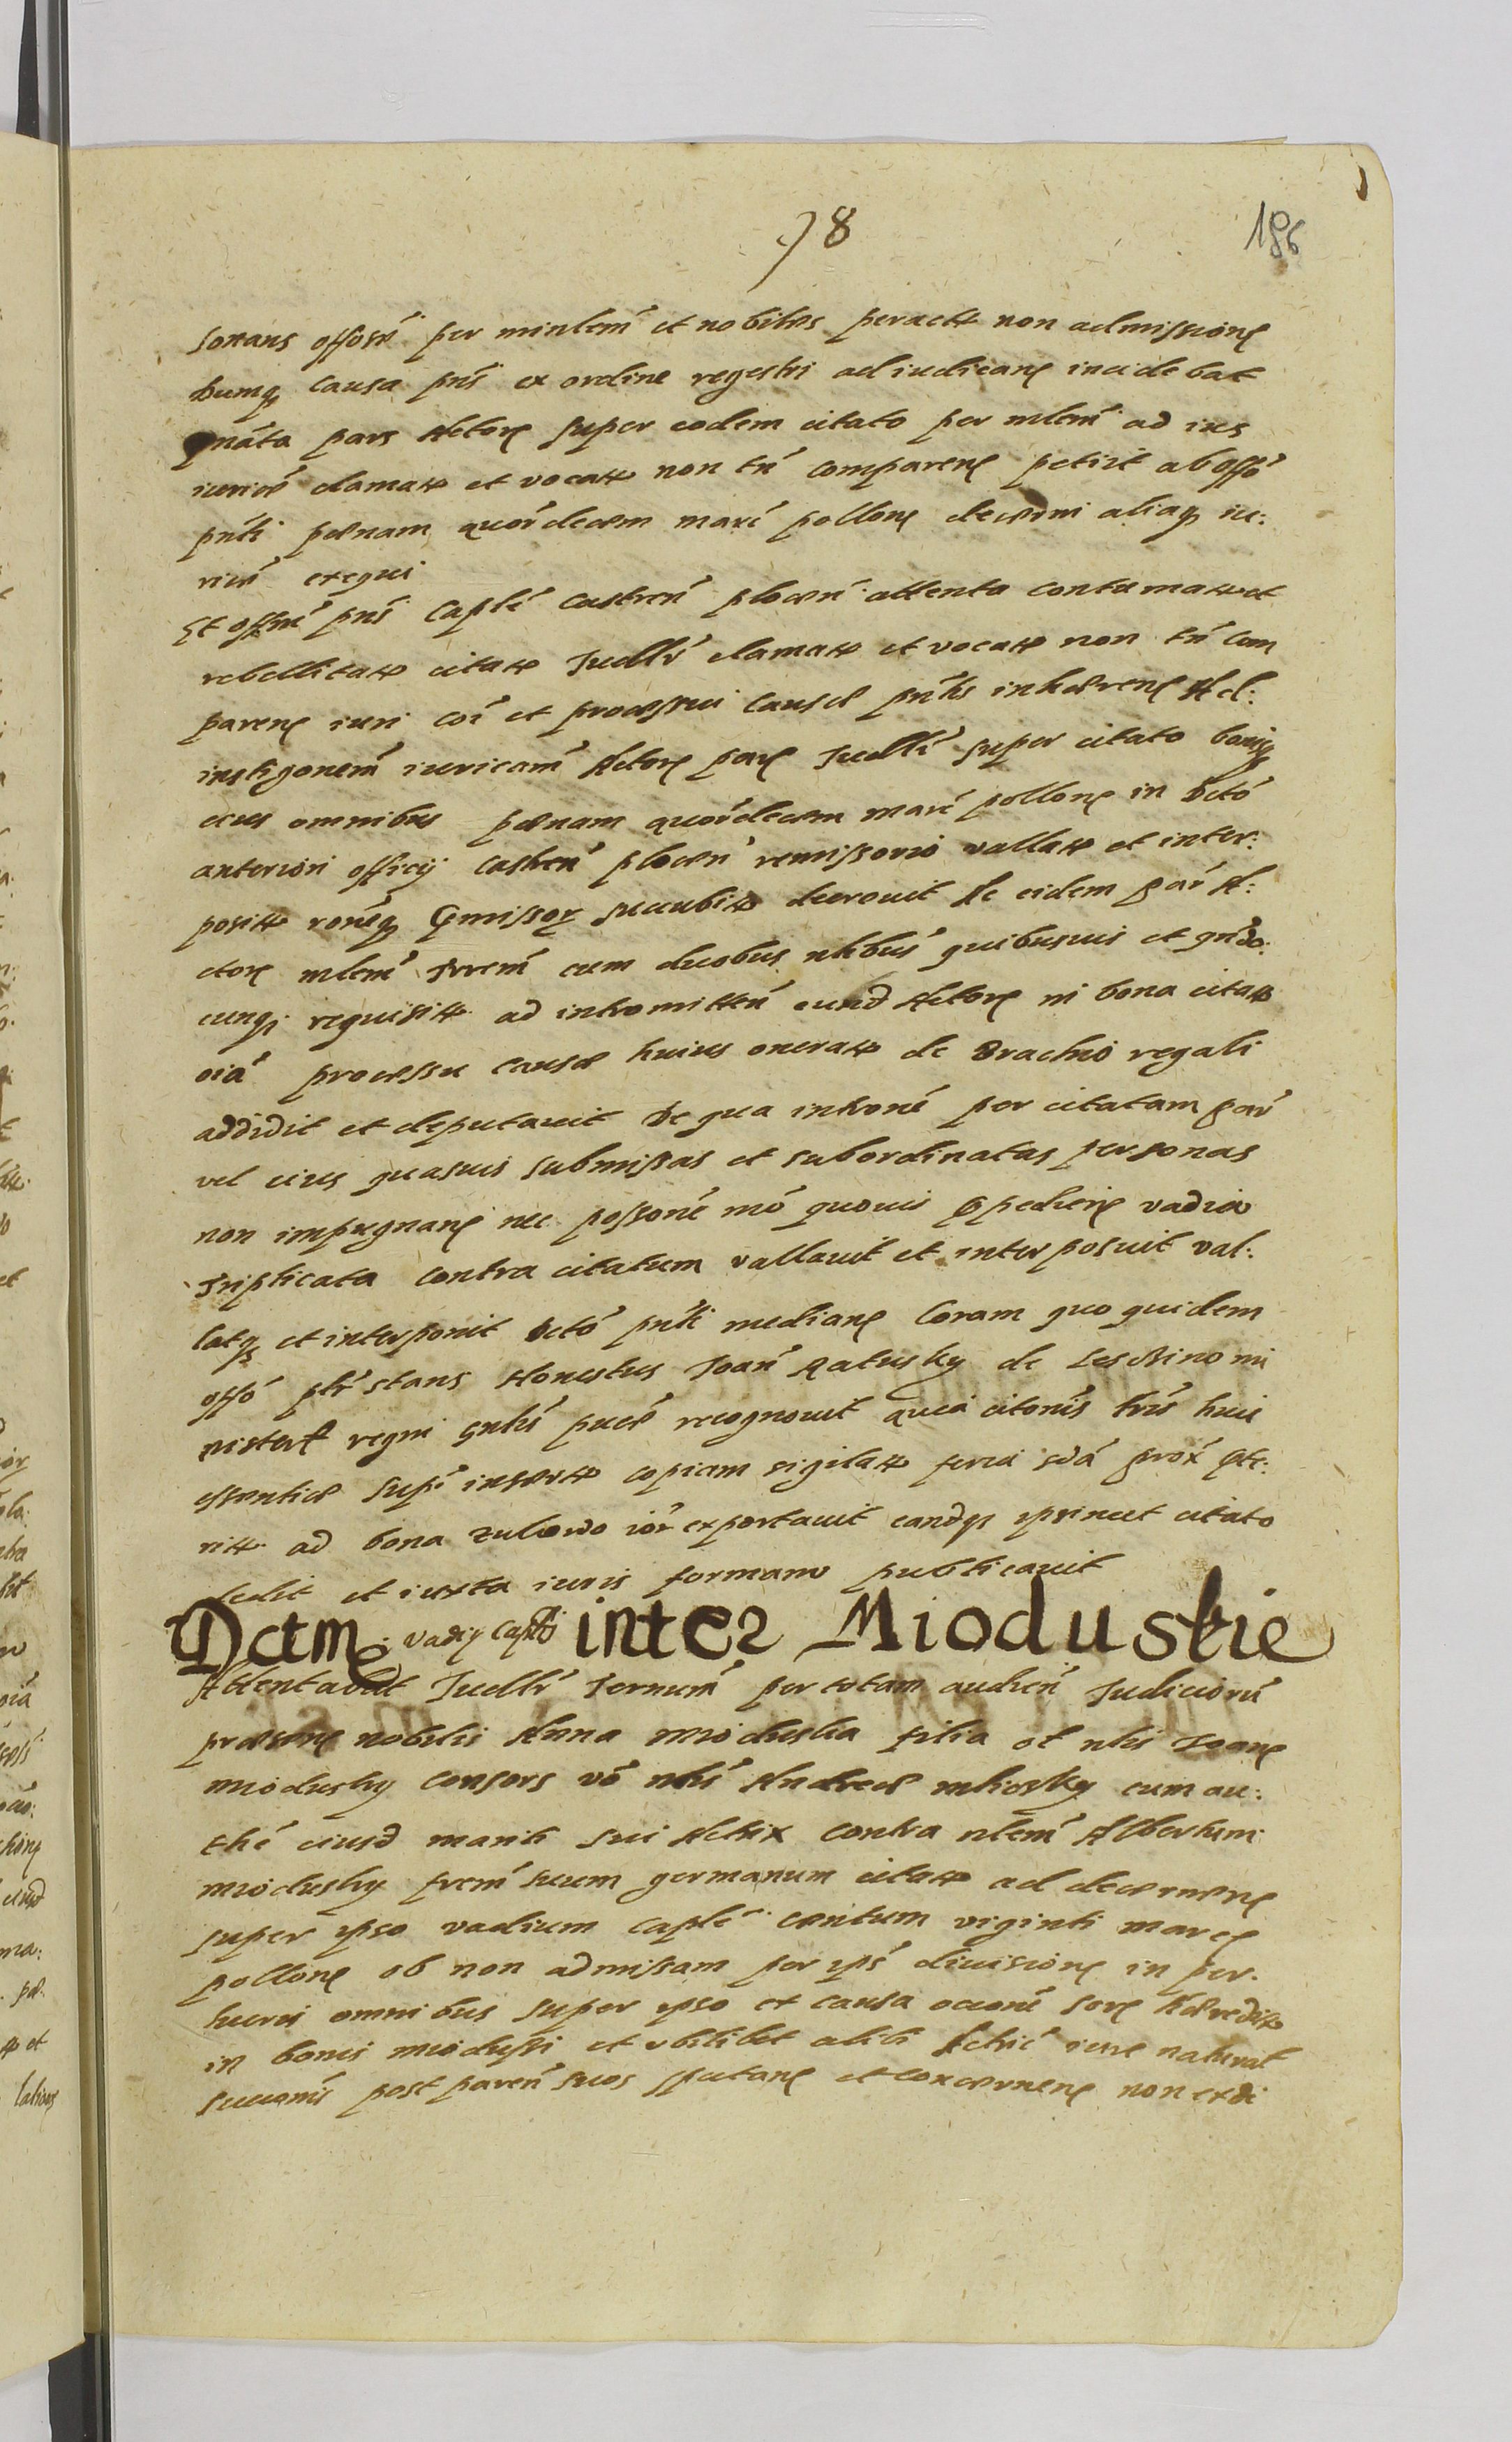 78
186
sonans offosē per minlem̄ et nobiles peractt non admissione
Dumq causa pn̄s ex ordine regestri adiudicane incidebat
pnāta pars Actore super eodem citato per mlem̄ ad ius
iurice clamat et vocat non tn̄ comparene petiit ab offō
pn̄ti pænam quor̄decem marc̄ pollone decerni aliaq iu:
rice exequi
Et offm̄ pn̄s Caplē Castren̄ plocen̄ attenta contumat et
rebellitat citat Iudlr̄ clamat et vocat non tn̄ com
parene iuri coī et processui causæ pn̄tis inhærene Ad:
instigonem̄ iuricam̄ Actore pare Iudlr̄ super citato bonisq
eius omnibus pænam quor̄decem marc̄ pollone in Dctō
anteriori officij castren̄ plocen̄ remissorio vallat et inter:
positt ronēq succubitt decrevit Ac eidem par̄ A:
ctore mlem̄ cum duobus nlibus̄ quibusuis et qn̄do:
cunq requisitt ad intromitten̄ eund Actore in bona citat
oiā processu causæ huius onerat de Brachio regali
addidit et deputavit De qua intronē per citatam par̄
vel eius quasuis submissas et subordinatas personas
non impugnane nec possonē mō quovis vadia
Triplicata contra citatum vallavit et interposuit val:
latq et interponit Dctō pn̄ti mediane Coram quo quidem
offō plr̄ stans Honestus Joan̄ Ratusky de Lesczino mi
nister regni gnlis̄ pucē recognovit quia citonis̄ lrīs huic
essentiæ supī insertt copiam sigilat feria scdā prox̄
ritt ad bona exportavit eandq ipsimet citato
dedit et iuxta iuris formam publicavit
Dctm vadij Caplis inter Mioduskie
Attentabat Iudlr̄ Termum̄ per totam audien̄ Iudiciorū
præsens nobilis Anna Mioduska filia ol nlis Joane
Miodusky consors vō nlis̄ Andreæ cum au:
thē eiusd mariti sui Actrix contra nlem̄ Albertum
Miodusky frem̄ suum germanum citat ad decernene
super ipso vadium caplē centum viginti marce
pollone ob non admissam per ips̄ divisione in per:
omnibus super ipso ex causa
in bonis Miodussi et ubilibet alibi Actric̄ iure natural
succonis̄ post paren̄ suos sputane et concernene non exdi